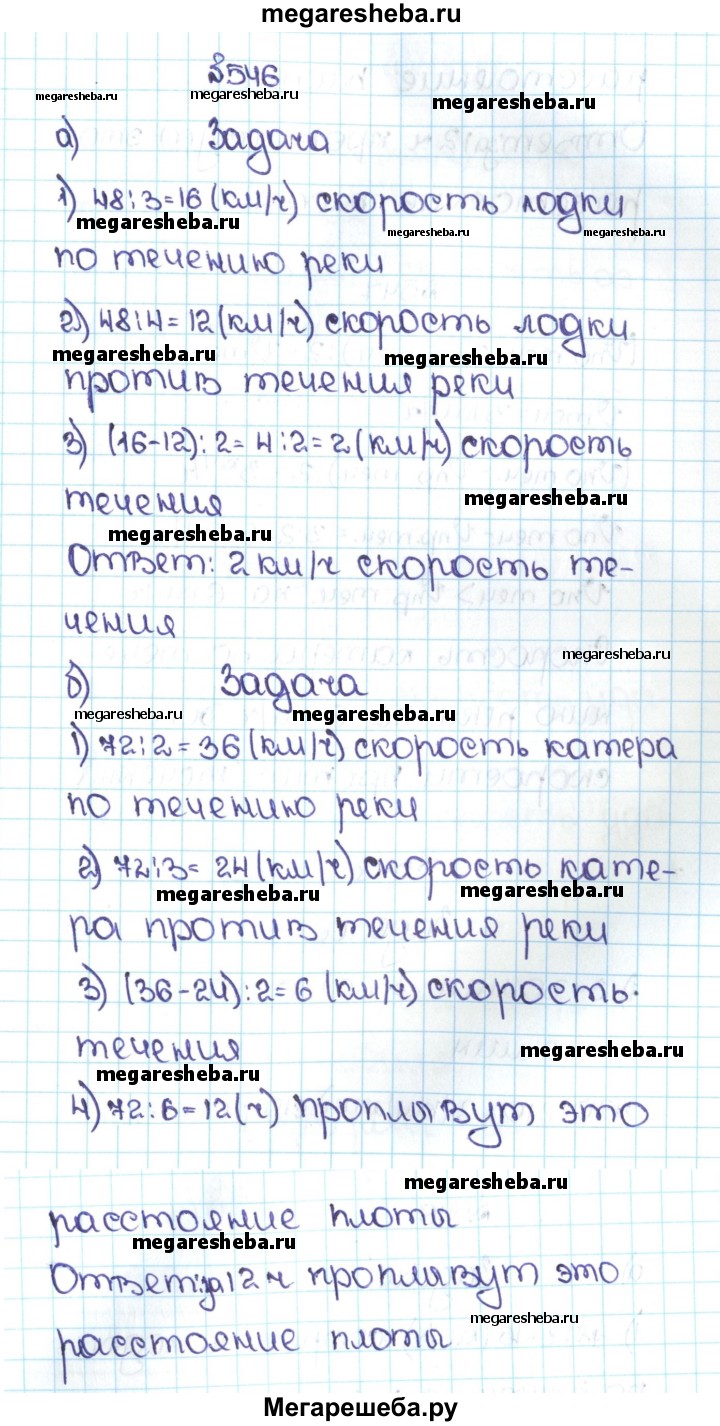 megaresheba.ru
№546
megaresheba.ru megaresheba.ru megaresheba.ru
а) Задача
1) 48:3=16 (км/ч) скорость лодки
megaresheba.ru megaresheba.ru megaresheba.ru
по течению реки
2) 48:4=12 (км/ч) скорость лодки
megaresheba.ru megaresheba.ru
против течения реки
3) (16-12):2=4:2=2 (км/ч) скорость
течения megaresheba.ru
megaresheba.ru
Ответ: 2 км/ч скорость те-
чения
megaresheba.ru
б) Задача
megaresheba.ru megaresheba.ru
1) 72:2=36 (км/ч) скорость катера
по течению реки
2) 72:3=24 (км/ч) скорость кате-
megaresheba.ru megaresheba.ru
ра против течения реки
3) (36-24):2=6 (км/ч) скорость
течения megaresheba.ru
megaresheba.ru
4) 72:6=12 (ч) проплывут это
megaresheba.ru
расстояние плоты
megaresheba.ru
Ответ: за 12 ч проплывут это
megaresheba.ru
расстояние плоты
Мегарешеба.ру